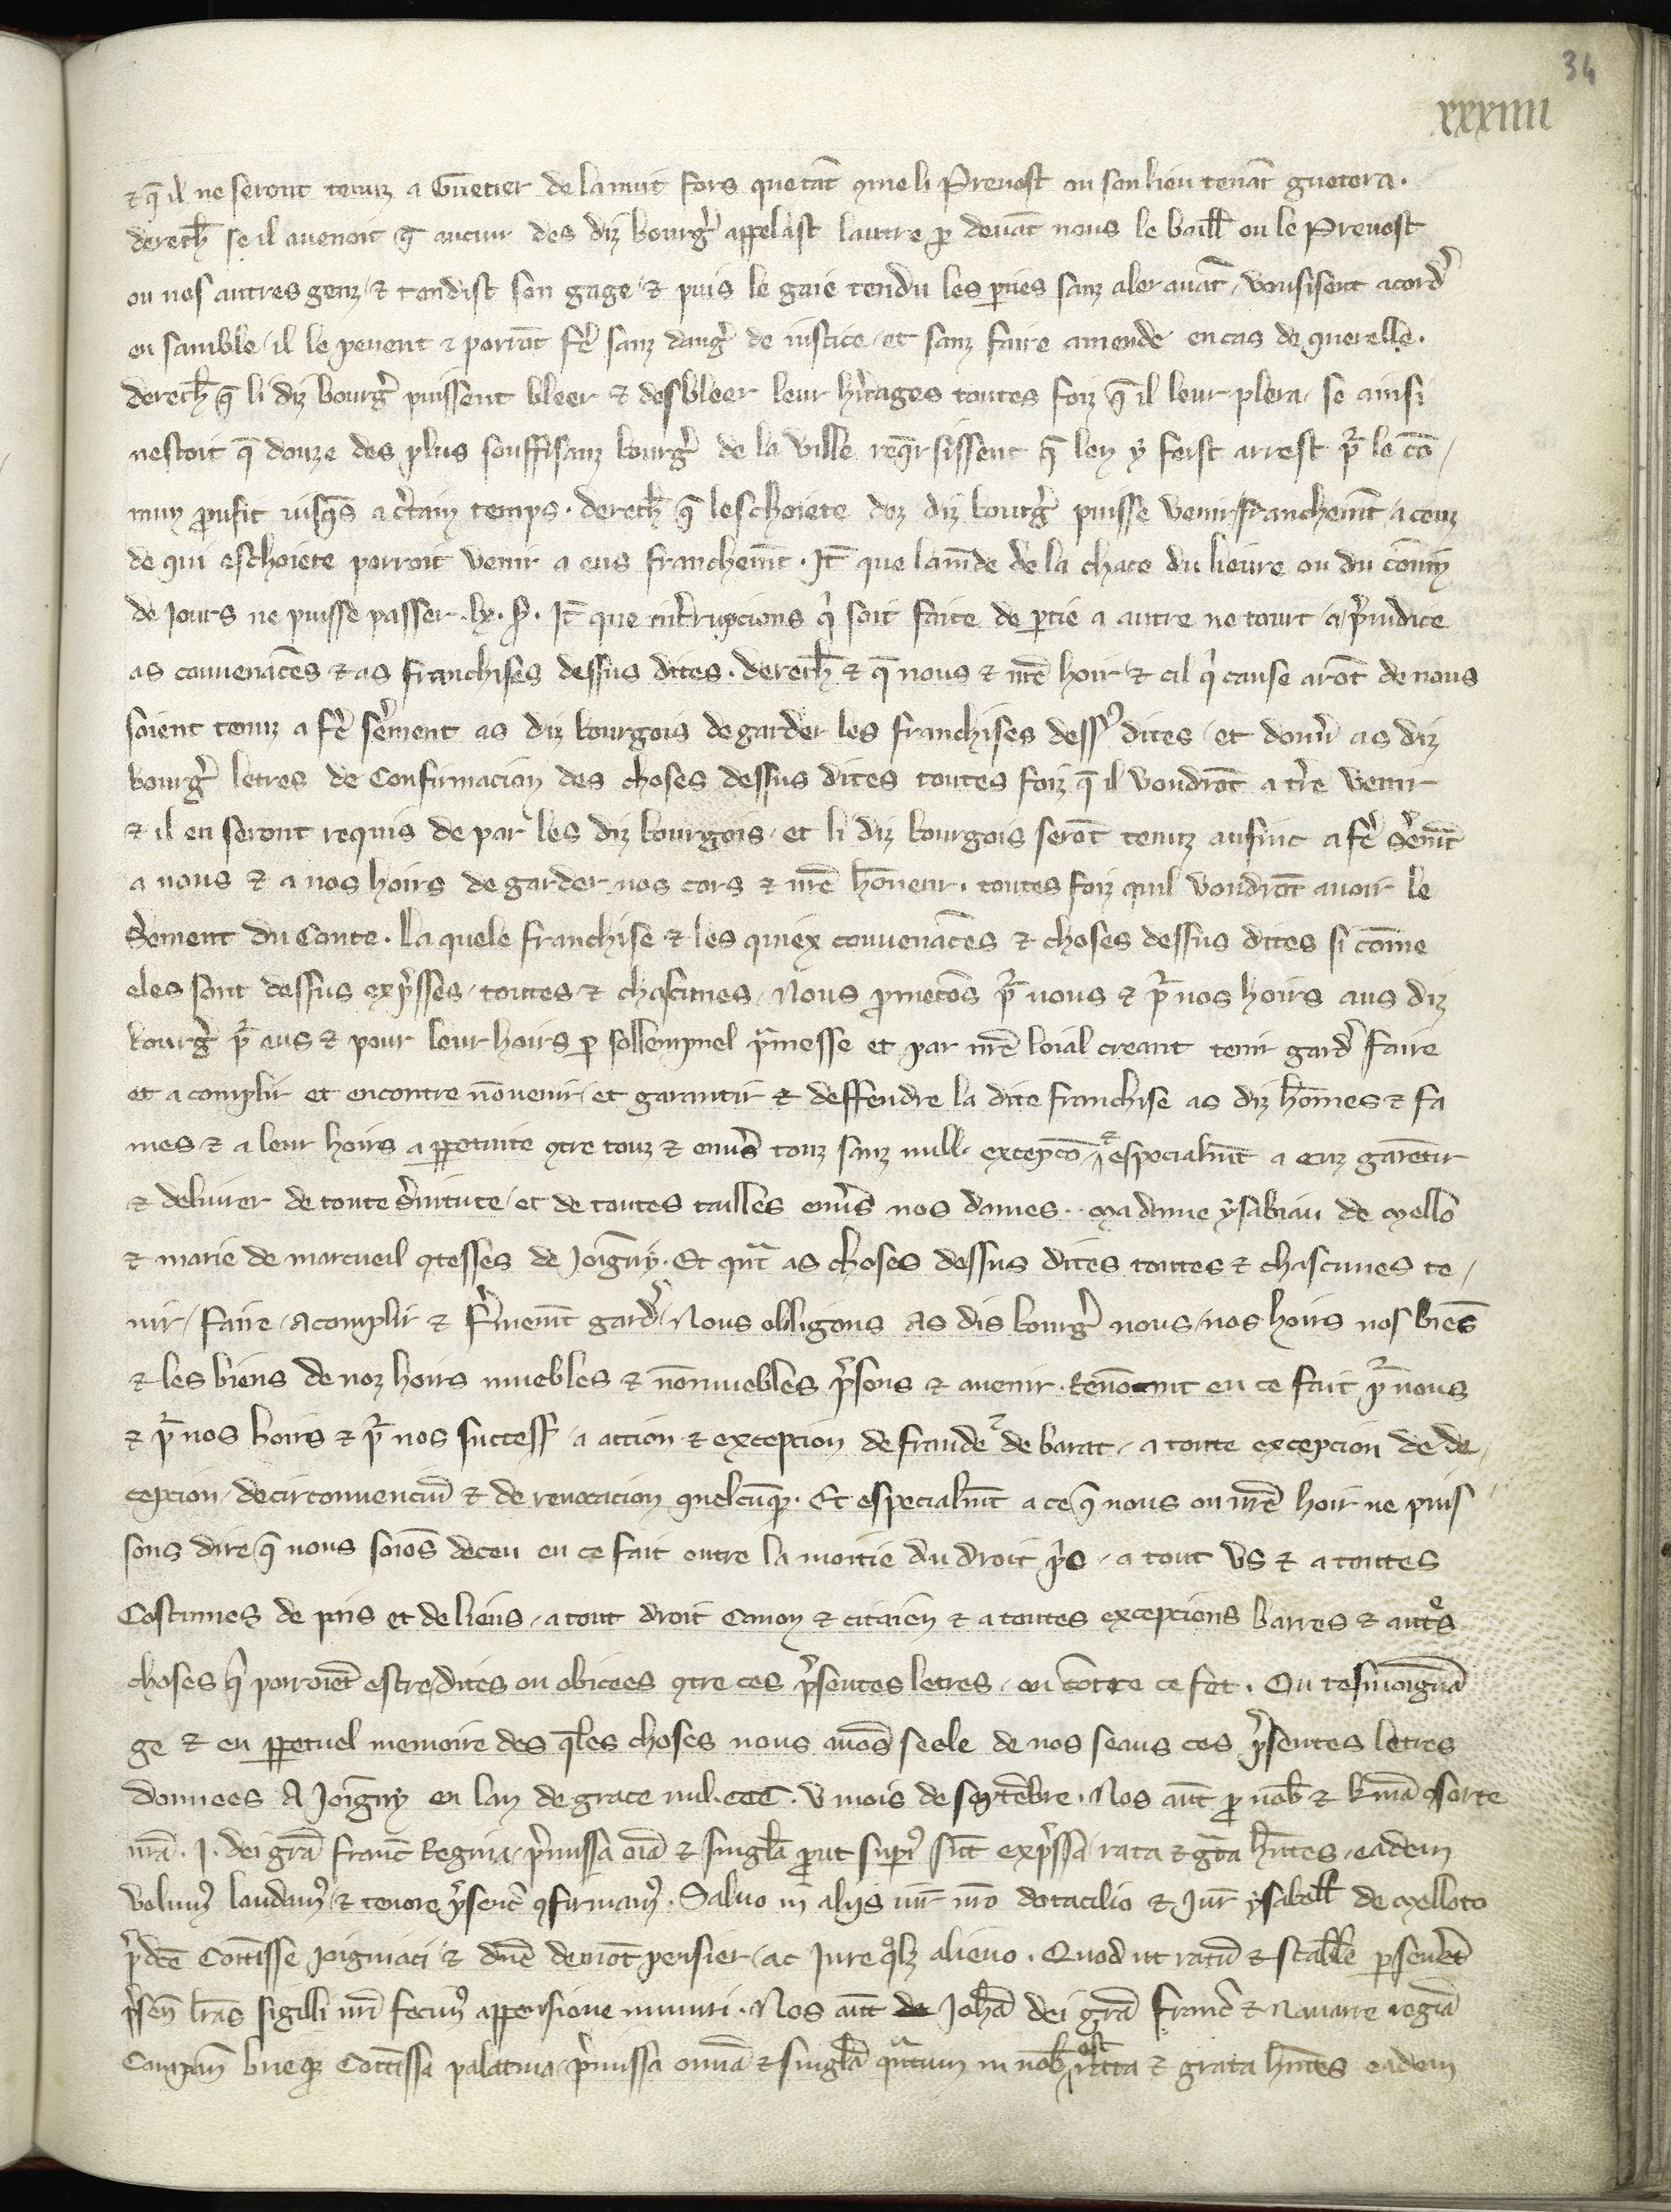 34
xxxiiii
⁊ q̄ il ne seront tenuz a Guetier de la nuit fors que tāt q̄me li Prevost ou son lieu tenāt guetera.
derech̄ se il avenoit q̄ aucun des diz bourg̾ appelast lautre p̱ devāt nous le baill̄ ou le Prevost
ou nos autres genz, ⁊ tendist son gage, ⁊ puis le gaie tendu les p̱ties sanz aler avāt, vousisent acord̾
en samble, il le pevent ⁊ porrōt fe̾ sanz dang̾ de iustice, et sanz faire amende en cas de querelle.
derech̄ q̄ li diz bourg̾ puissent bleer ⁊ desbleer leur h̾itages toutes foiz q̄ il leur plera, se ainsi
nestoit q̄ douze des plus souffisanz bourg̾ de la ville req̄rsissent q̄ len y feist arrest p̾ le cō,
mun p̱ufit iusq̄s a c̾tain temps. derech̄ q̄ leschoiete dez diz bourg̾ puisse venir franchemt̄ a ceuz
de qui eschoiete porroit venir a eus franchemt̄. It̄ que lam̄de de la chace du lievre ou du cōnin
de iours ne puisse passer. lx. s̄. It̄ que int̾rupcions q̾ soit faite de p̱tie a autre ne tourt a p̾iudice
as convenāces ⁊ as franchises dessus dites. derech̄ ⁊ q̄ nous ⁊ nr̄e hoir ⁊ cil q̾ cause arōt de nous
soient tenuz a fe̾ se̾ment as diz bourgois de garder les franchises dess⁹ dites, et don̾n as diz
bourg̾ letres de Confirmacion des choses dessus dites toutes foiz q̄ il voudrōt a t̾re venir
⁊ il en seront requis de par les diz bourgois, et li diz bourgois serōt tenuz ausint a fe̾ s̾emt̄
a nous ⁊ a nos hoirs de garder nos cors ⁊ nr̄e hōneur. toutes foiz quil voudrōt avoir le
s̾ement du Conte. La quele franchise ⁊ les quiex convenāces ⁊ choses dessus dites si cōme
eles sont dessus exp̾sses, toutes ⁊ chascunes, Nous p̱metōs p̾ nous ⁊ p̾ nos hoirs aus diz
bourg̾ p̾ eus ⁊ pour leur hoirs p̱ sollempnel p̾messe et par nr̄e loial creant tenir gard̾ faire
et a complir et encontre nō venir, et garantir ⁊ deffendre la dite franchise as diz hōmes ⁊ fa
mes ⁊ a leur hoirs a p̱petuite 9tre touz ⁊ env̾s touz sanz null. excepcō, ⁊ especialmt̄ a euz garētir
⁊ delivrer de toute s̾vitute, et de toutes tailles env̾s nos dames.. Madame ysabiau de Mello
⁊ marie de marcueil 9tesses de Joigny. Et qūt as choses dessus dites toutes ⁊ chascunes te,
nir, faire, acomplir ⁊ f̾memt̄ gard̾, Nous obligons as dis bourg̾ nous, nos hoirs nos biēs
⁊ les biens de noz hoirs muebles ⁊ nōmuebles p̾sens ⁊ avenir. Renōcant en ce fait p̾ nous
⁊ p̾ nos hoirs ⁊ p̾ nos success̄, a accion ⁊ excepcion de fraude ⁊ de barat, a toute excepcion de de,
cepcion, de circonvenciō ⁊ de revocacion quelcūq̱. Et especialmt̄ a ce q̄ nous ou nr̄e hoir ne puis,
sons dire q̄ nous soiōs deceu en ce fait outre la moitie du droit p̾s, a tout us ⁊ a toutes
Costumes de pais et de lieus, a tout droit Canon ⁊ citaien ⁊ a toutes excepcions barres ⁊ aut̾s
choses q̾ porroiēt estre dites ou obicees 9tre ces p̾sentes letres, ou cōtre ce fet. Ou tesmoigna
ge ⁊ en p̱petuel memoire des q̄les choses nous avōs seele de nos seaus ces p̾sentes letres
donnees A Joigny en lan de grace mil. ccc. u mois de septēbre. Nos aut̄ p̱ nob̄ ⁊ k̄mā 9sorte
nr̄a. J. dei gr̄a franc̄ Regina, p̾missa oīa ⁊ singl̄a p̱ut sup̱i⁹ sūt exp̾ssa, rata ⁊ gt̄a hn̄tes, eadem
volum⁹ laudam⁹, ⁊ tenore p̾senc̄ 9firmam⁹. Salvo in aliis iur̄ nr̄o dotacilio ⁊ Jur̄ ysabell̄ de Melloto
p̾dc̄e Comītisse Joigniaci ⁊ dn̄e de mōt pensier, ac Jure q̊lz alieno. Quod ut ratū ⁊ stabile p̱sev̾et
p̾sen̄ lr̄as sigilli nr̄i fecim⁹ appensione muniri. Nos aut̄ Joh̄a dei gr̄a franc̄ ⁊ Navarre regīa
Campan̄ brieq̱ Comītissa palatina, p̾missa omīa ⁊ singl̄a q̾ntum in nob̄ est rata ⁊ grata hn̄tes eadem